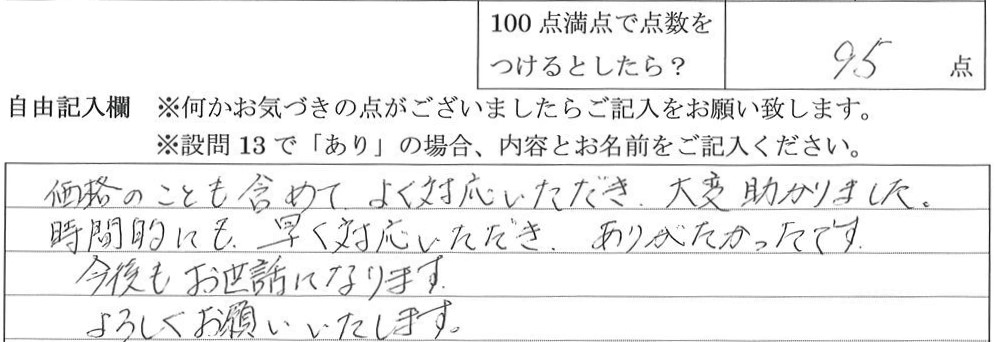 100 点満点で点数を
つけるとしたら？
95 点
自由記入欄 ※何かお気づきの点がございましたらご記入をお願い致します。
※設問 13 で「あり」の場合、内容とお名前をご記入ください。
価格のことも含めて、よく対応いただき、大変助かりました。
時間的にも、早く対応いただき、ありがたかったです。
今後もお世話になります。
よろしくお願いいたします。